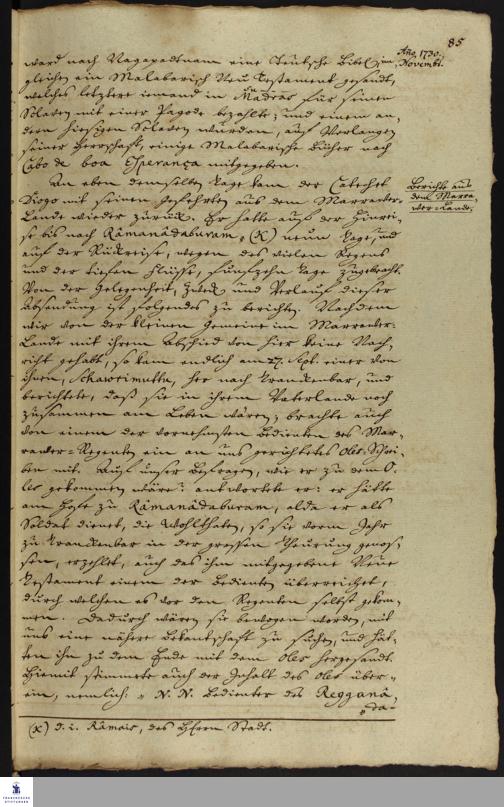 85
Año. 1730.
Novembr.
ward nach Nagapadtnam eine Teutsche Bibel, im
gleichen ein Malabarisch Neu Testament gesandt,
welches letztere jemand in Madras für seinen
Sclaven mit einer Pagode bezahlte; und einem an-
dern hiesigen Sclaven wurden, auf Verlangen
seiner Herrschaft, einige Malabarische Bücher nach
Cabo de boa Esperança mitgegeben.
An eben demselben Tage kam der Catechet
Diogo mit seinen Gefehrten aus dem Marrawer-
Lande wieder zurück. Er hatte auf der Hinrei-
se bis nach Râmanâdaburam, (x) neun Tage, und
auf der Rückreise, wegen des vielen Regens
und der tiefen Flüsse, funfzehn Tage zugebracht.
Von der Gelegenheit, Zweck und Verlauf dieser
Absendung ist folgendes zu berichten. Nachdem
wir von der kleinen Gemeine im Marrawer-
Lande mit ihrem Abschied von hier keine Nach-
richt gehabt, so kam endlich am 27. Sept. einer von
ihnen, Schawrimuttu, her nach Tranckenbar, und
berichtete, daß sie in ihrem Vaterlande noch
zusammen am Leben wären; brachte auch
von einem der vornehmsten Bedienten des Mar-
rawer-Regenten ein an uns gerichtetes Oles-Schrei-
ben mit. Auf unser Befragen, wie er zu dem O-
les gekommen wäre? antwortete er: er hätte
am Hofe zu Râmanâdaburam, alda er als
Soldat dienet, die Wohlthaten, so sie vorm Jahr
zu Tranckenbar in der grossen Theurung genos-
sen, erzehlet, auch das ihm mitgegebene Neue
Testament einem der Bedienten überreichet,
durch welchen es vor den Regenten selbst gekom-
men. Dadurch wären sie bewogen worden, mit
uns eine nähere Bekantschaft zu suchen, und hät-
ten ihn zu dem Ende mit dem Oles hergesandt.
Hiemit stimmete auch der Inhalt des Oles über-
ein, nemlich: N. N. Bedienter des Regganâ,
da-
Berichte aus
dem Marra
wer-Lande.
(x) d. i. Râmais, des HErrn Stadt.
FRANCKESCHE
STIFTUNGEN